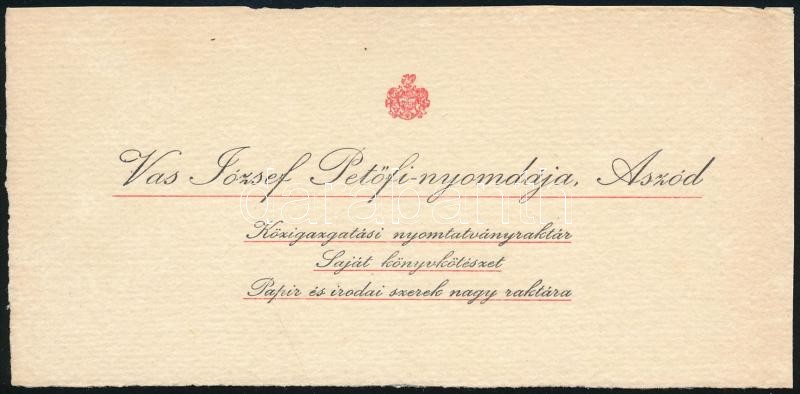 Vas József Petőfi-nyomdája, Aszód
Közigazgatási nyomtatványraktár
Saját könyvkötészet
Papir és irodai szerek nagy raktára